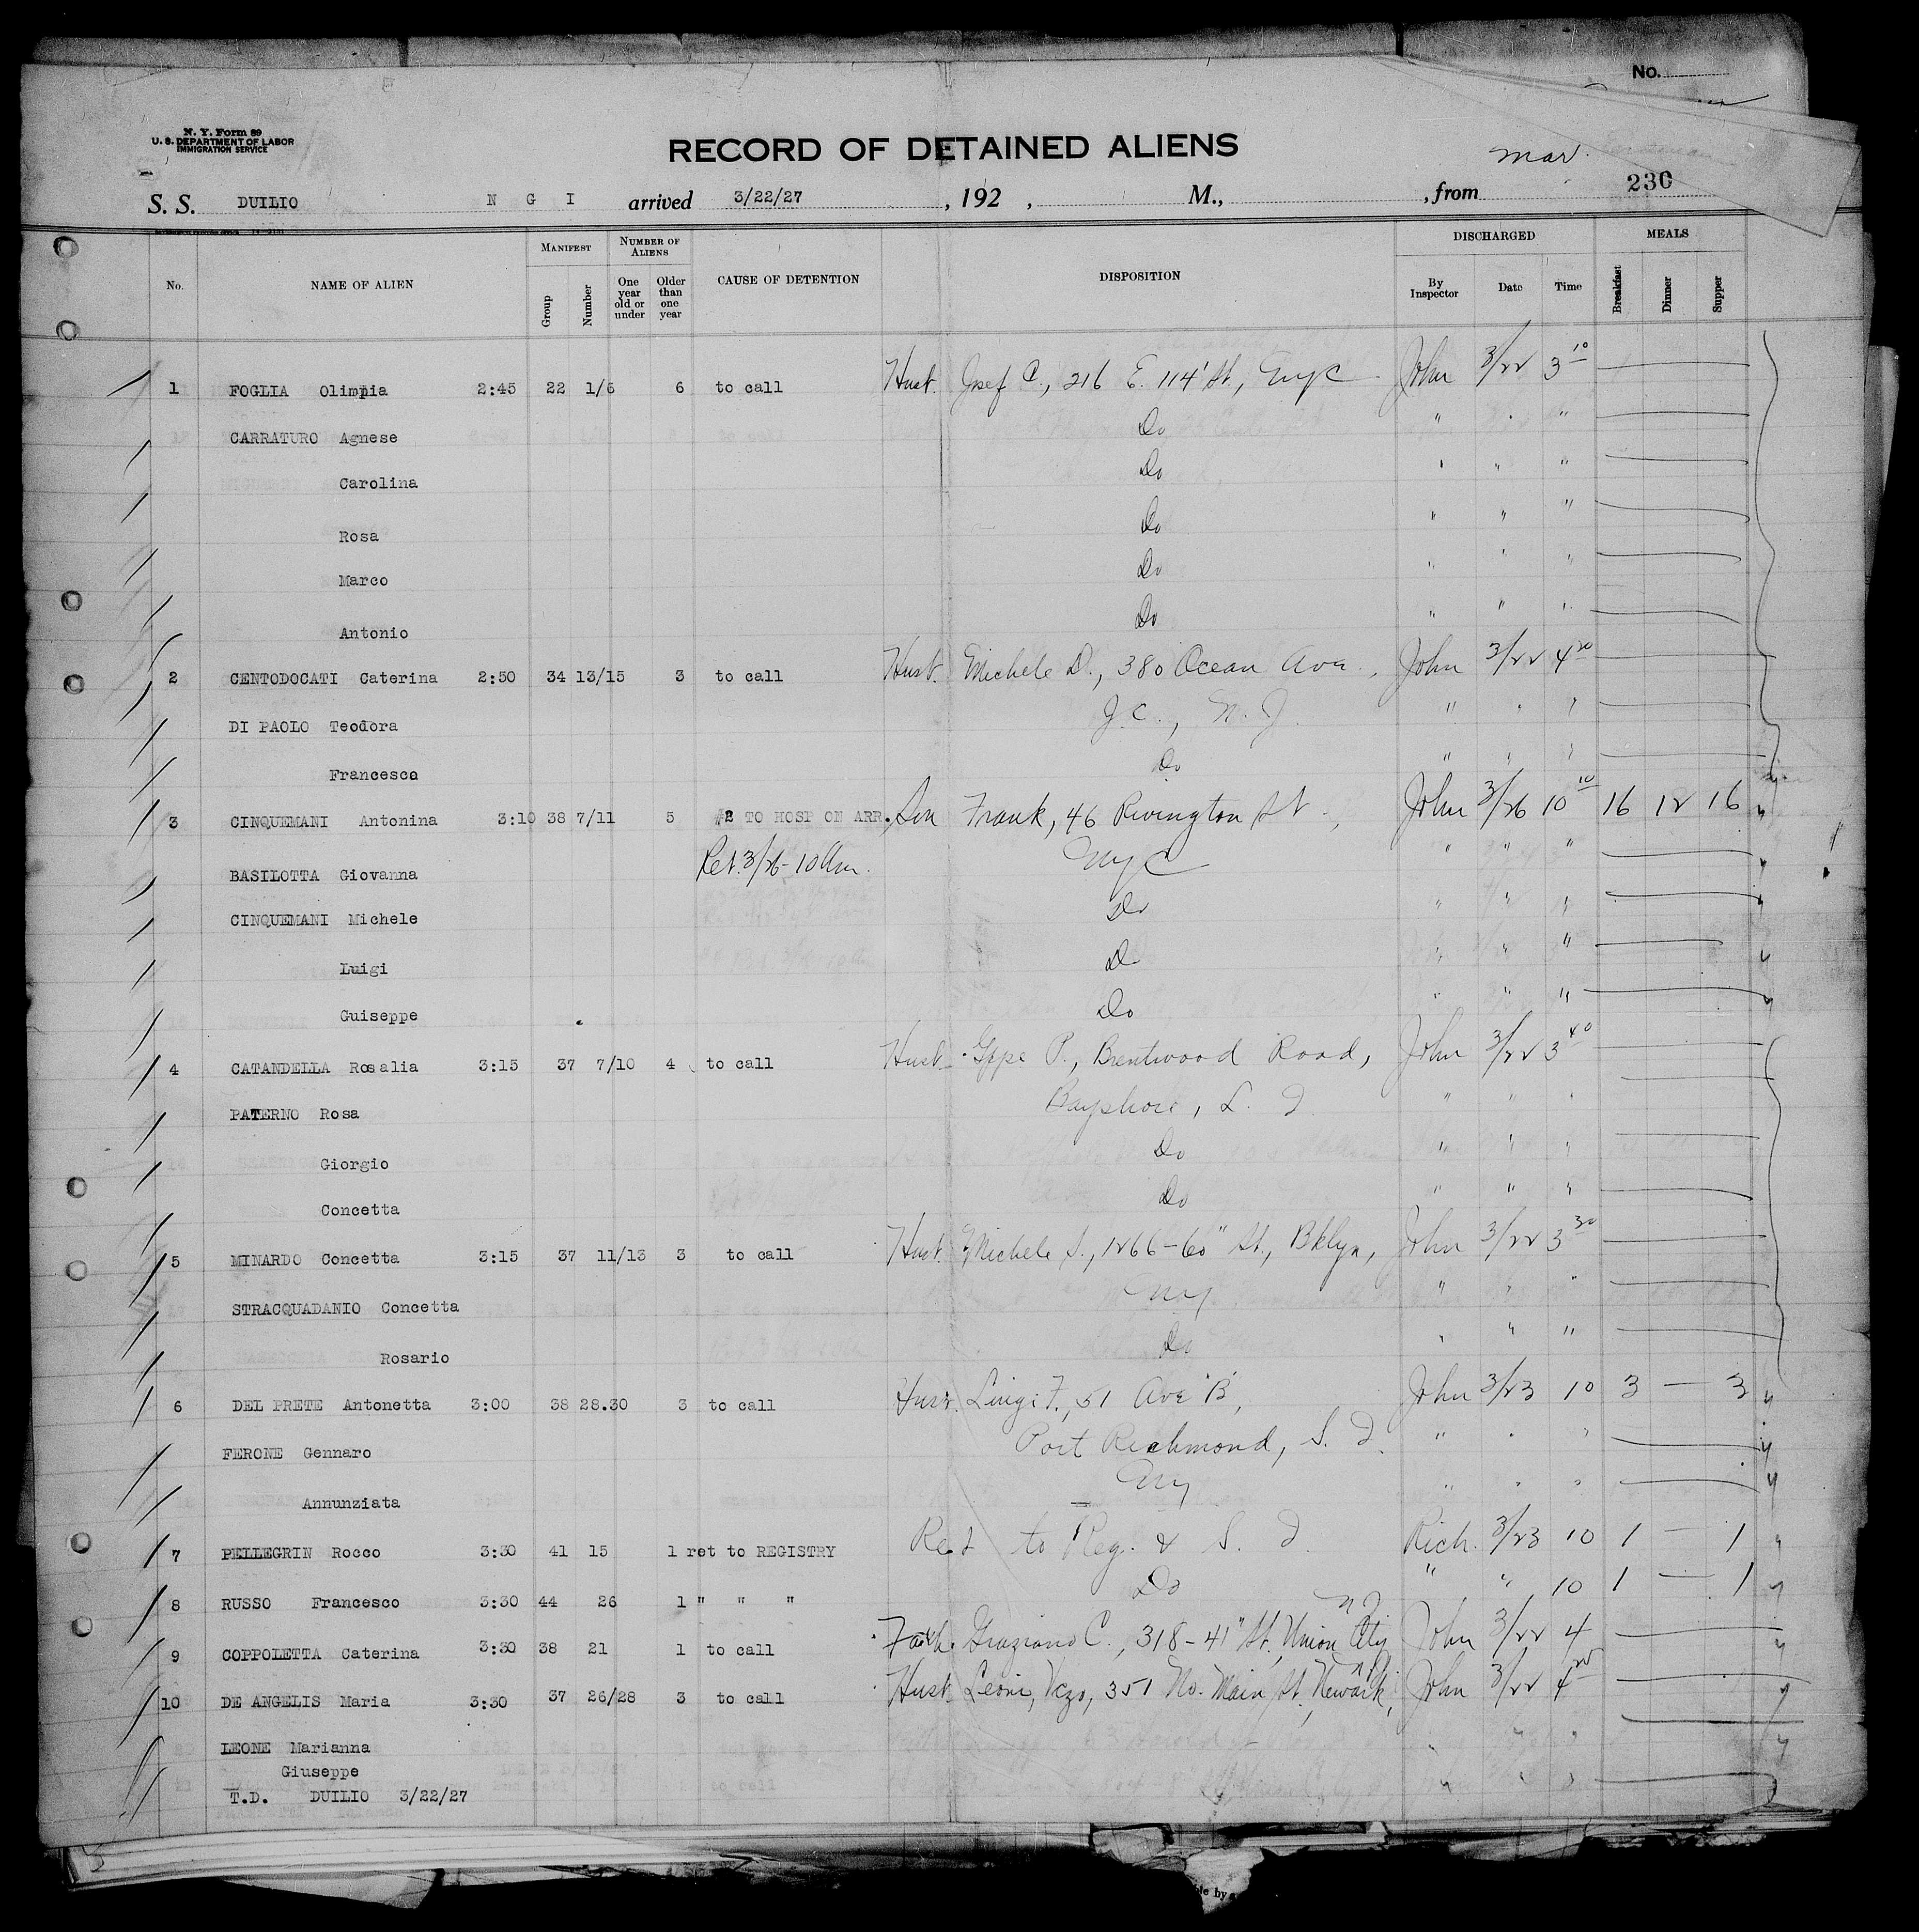 No.
N. Y. Form 89
U. S. DEPARTMENT OF LABOR
IMMIGRATION SERVICE
RECORD OF DETAINED ALIENS
Mar.
S. S. DUILIO N G I arrived 3/22/27, 192 , M., , from 230
No. NAME OF ALIEN MANIFEST Group Number NUMBER OF ALIENS One year old or under Older than one year CAUSE OF DETENTION DISPOSITION DISCHARGED By Inspector Date Time MEALS Breakfast Dinner Supper
1 FOGLIA Olimpia 2:45 22 1/6 6 to call Husb. Josef C., 216 E. 114' St., NYC John 3/22 3 10
CARRATURO Agnese Do " " "
Carolina Do " " "
Rosa Do " " "
Marco Do " " "
Antonio Do " " "
2 CENTODOCATI Caterina 2:50 34 13/15 3 to call Husb. Michele D., 380 Ocean Ave. John 3/22 4 20
DI PAOLO Teodora J.C., N.J. " " "
Francesco Do " " "
3 CINQUEMANI Antonina 3:10 38 7/11 5 #2 TO HOSP ON ARR. Son Frank, 46 Rivington St., John 3/26 10 10 16 12 16 "
Ret. 3/26-10 am.
BASILOTTA Giovanna NYC " " "
CINQUEMANI Michele Do " " "
Luigi Do " " "
Guiseppe Do " " "
4 CATANDELLA Rosalia 3:15 37 7/10 4 to call Husb. Gppe P., Brentwood Road, John 3/22 3 40
PATERNO Rosa Bayshore, L. I. " " "
Giorgio Do " " "
Concetta Do " " "
5 MINARDO Concetta 3:15 37 11/13 3 to call Husb. Michele S., 1266-60" St., Bklyn, John 3/22 3 30
STRACQUADANIO Concetta NY " " "
Rosario Do " " "
6 DEL PRETE Antonetta 3:00 38 28.30 3 to call Husb. Luigi F., 51 Ave "B", John 3/23 10 3 — 3 "
FERONE Gennaro Port Richmond, S. I. " " "
Annunziata NY " " "
7 PELLEGRIN Rocco 3:30 41 15 1 ret to REGISTRY Ret to Reg. & S. I. Rich. 3/23 10 1 — 1 "
8 RUSSO Francesco 3:30 44 26 1 " " " Do " " 10 1 — 1 "
9 COPPOLETTA Caterina 3:30 38 21 1 to call Fath. Graziano C., 318-41" St., Union City NJ John 3/22 4
10 DE ANGELIS Maria 3:30 37 26/28 3 to call Husb. Leone, 351 No. Main St., Newark, John 3/22 4
LEONE Marianna " " "
Giuseppe
T.D. DUILIO 3/22/27 " " "